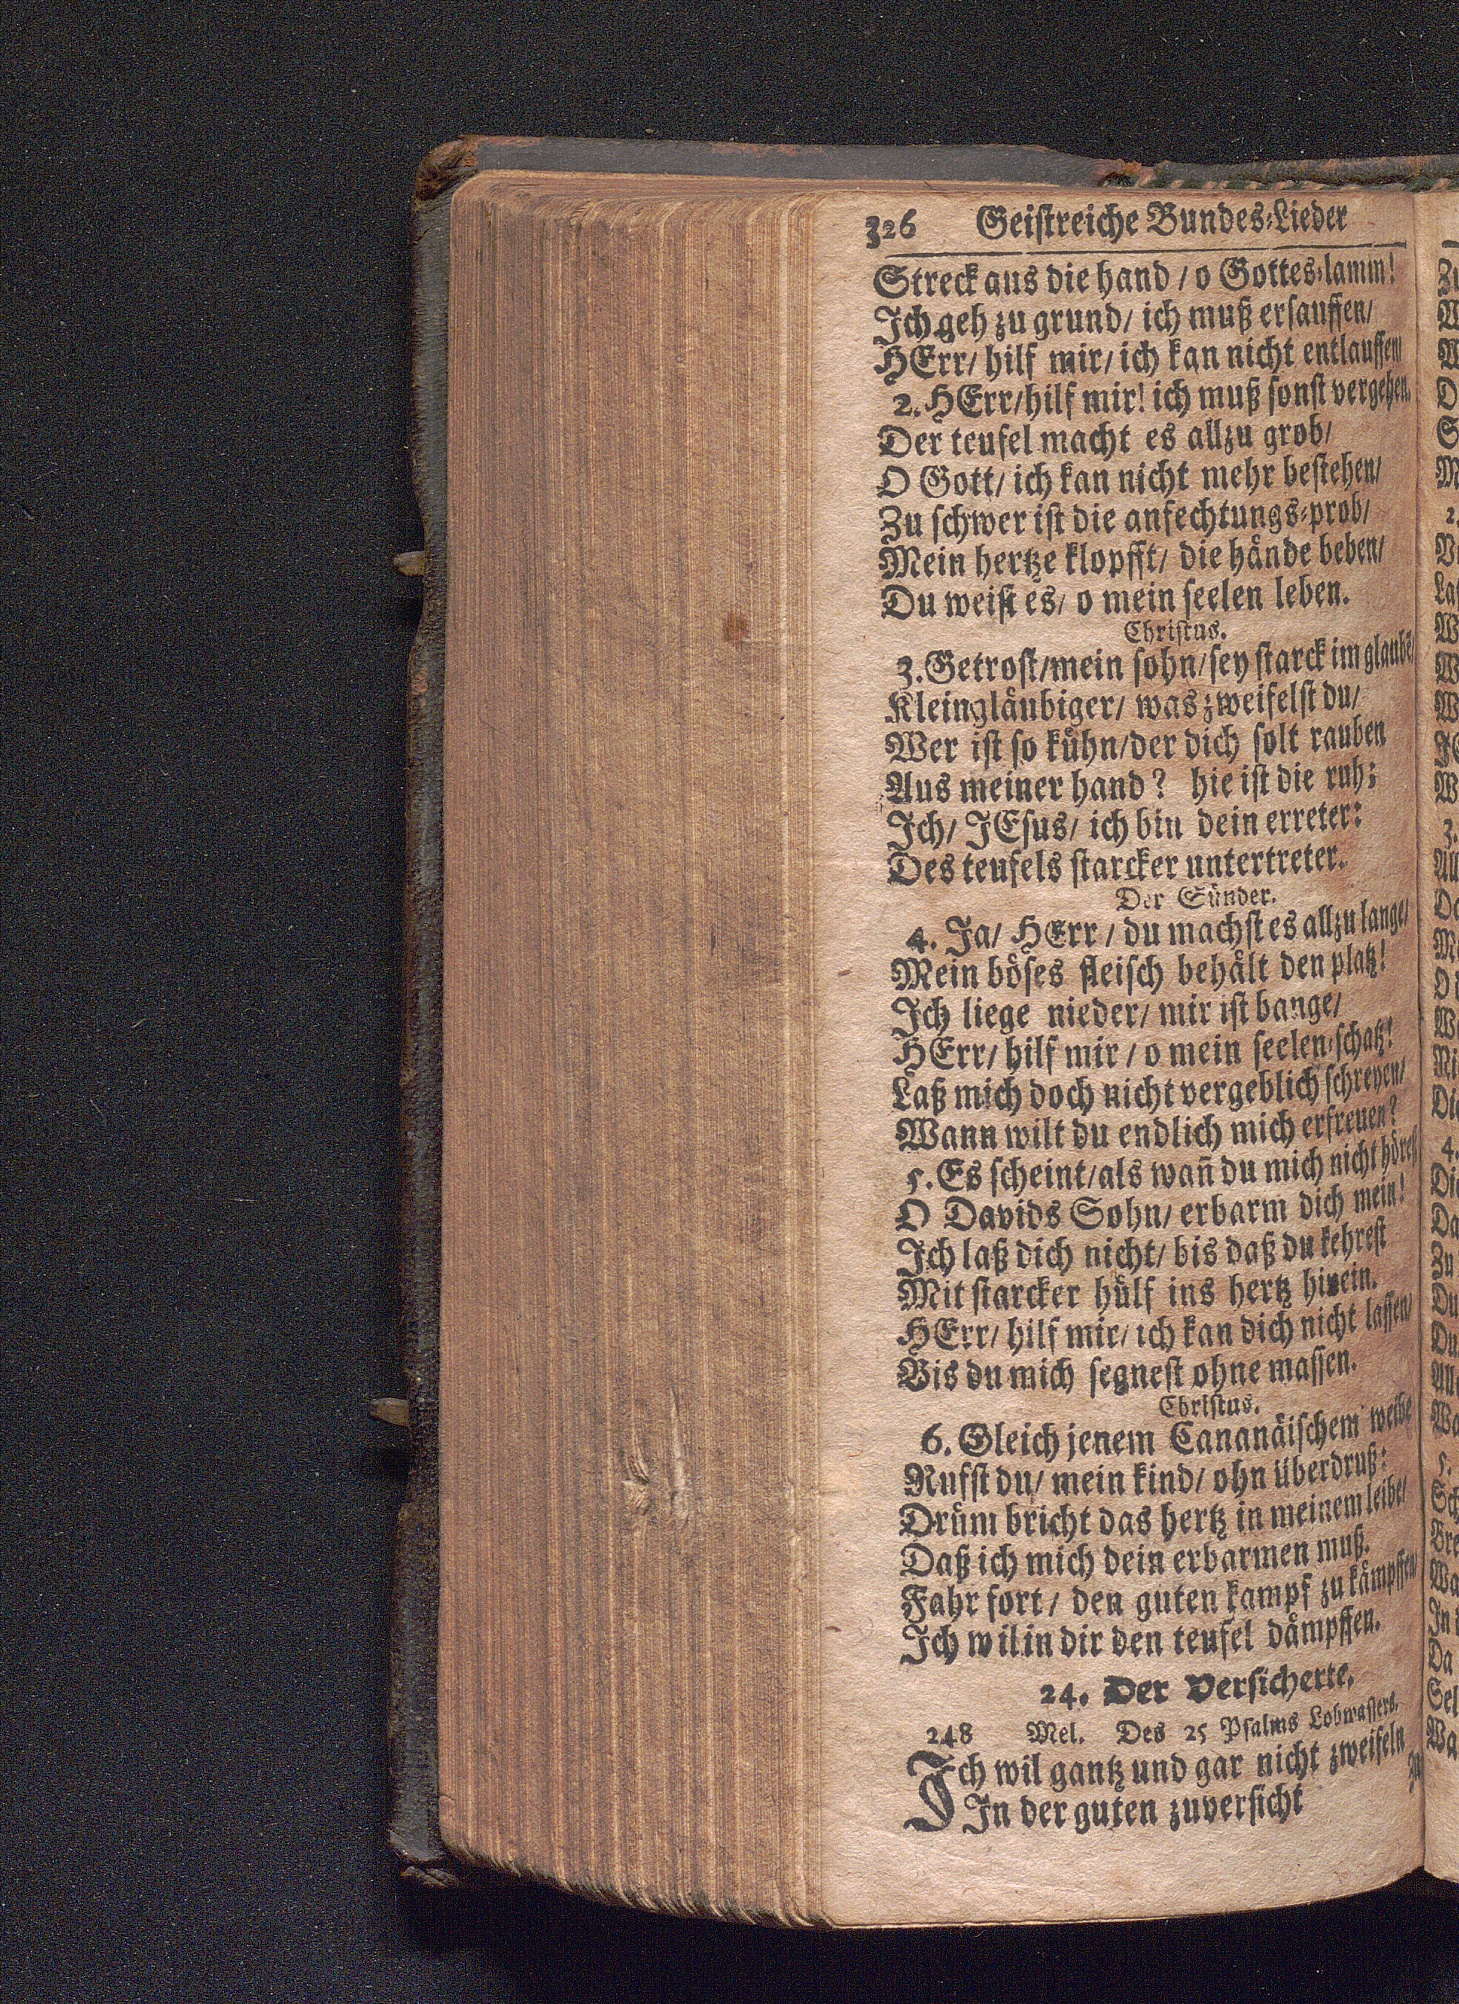 326 Geistreiche Bundes-Lieder
Streck aus die hand / o Gottes-lamm!
Ich geh zu grund/ ich muß ersauffen/
HErr/ hilf mir/ ich kan nicht entlauffen/
2. HErr/hilf mir! ich muß sonst vergehen.
Der teufel macht es allzu grob/
O Gott/ ich kan nicht mehr bestehen/
Zu schwer ist die anfechtungs-prob/
Mein hertze klopfft/ die hände beben/
Du weist es/ o mein seelen leben.
Christus.
3. Getrost/mein sohn/sey starck im glaubē/
Kleingläubiger/ was zweifelst du/
Wer ist so kühn/der dich solt rauben
Aus meiner hand? hie ist die ruh;
Ich/ JEsus/ ich bin dein erreter:
Des teufels starcker untertreter.
Der Sünder.
4. Ja/ HErr / du machst es allzu lange/
Mein böses fleisch behält den platz!
Ich liege nieder/ mir ist bange/
HErr/ hilf mir / o mein seelen-schatz!
Laß mich doch nicht vergeblich schreyen/
Wann wilt du endlich mich erfreuen?
5. Es scheint/als wañ du mich nicht hörest
O Davids Sohn/ erbarm dich mein!
Ich laß dich nicht/ bis daß du kehrest
Mit starcker hülf ins hertz hinein.
HErr/ hilf mir/ ich kan dich nicht lassen/
Bis du mich segnest ohne massen.
Christus.
6. Gleich jenem Cananäischem weibe
Rufst du/ mein kind/ ohn überdruß:
Drüm bricht das hertz in meinem leibe/
Daß ich mich dein erbarmen muß.
Fahr fort / den guten kampf zu kämpffen/
Ich wil in dir den teufel dämpffen.
24. Der Versicherte.
248 Mel. Des 25 Psalms Lobwassers.
Ich wil gantz und gar nicht zweifeln
In der guten zuversicht